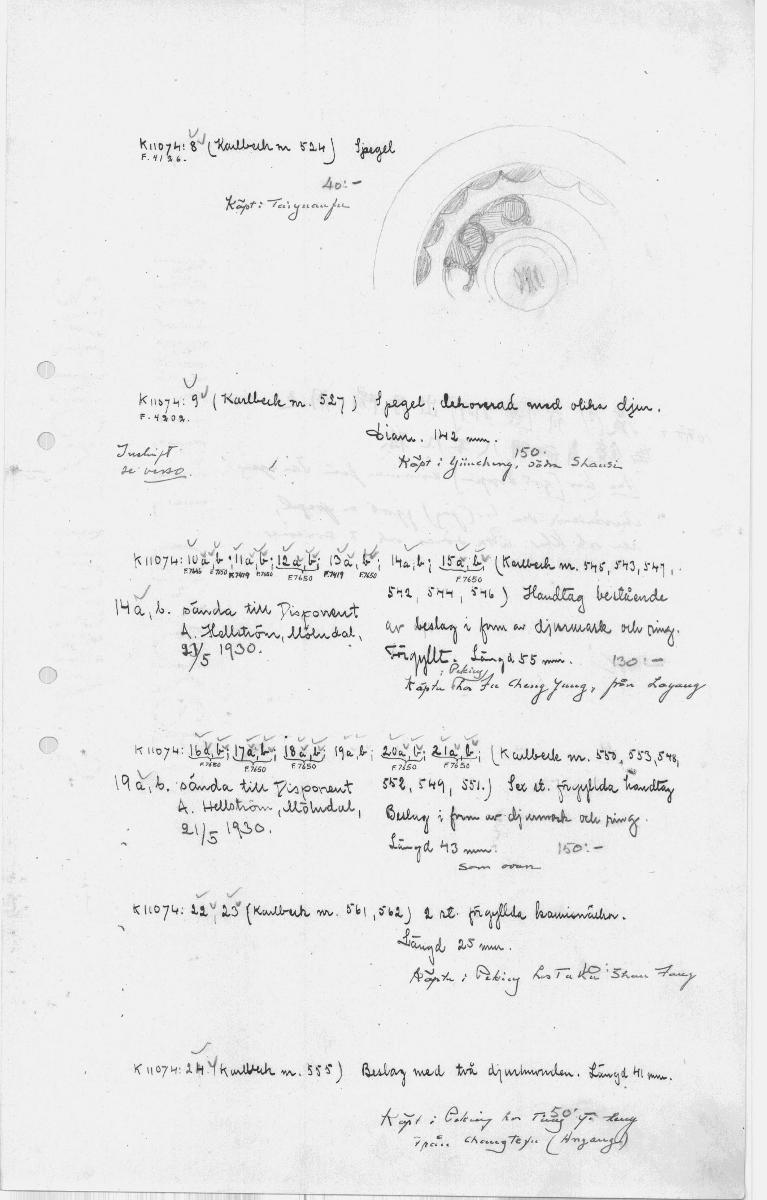 K11074: 8 (Karlbeck nr 524) Spegel
F. 4126.
40:-
Köpt i Taiyuanfu
K11074: 9 (Karlbeck nr. 527) Spegel, dekorerad med olika djur.
F. 4202.
Diam. 142 mm.
150.
Inskrift
se verso.
Köpt i Yüncheng, södra Shansi
K11074: 10a, b; 11a, b; 12a, b; 13a, b; 14a, b; 15a, b (Karlbeck nr. 545, 543, 547,
F.7650 F.7650 F.7650 F.7419 F.7650 F.7650
542, 544, 546) Handtag bestående
14a, b. sända till Disponent
av beslag i form av djurmask och ring.
A. Hellström, Mölndal,
21/5 1930.
Förgyllt. Längd 55 mm. 130:-
i Peking
Köpta hos Fu Cheng Yung, från Loyang
K11074: 16a, b; 17a, b; 18a, b; 19a, b; 20a, b; 21a, b; (Karlbeck nr. 550, 553, 548,
F.7650 F.7650 F.7650 F.7650 F.7650
552, 549, 551.) Sex st. förgyllda handtag
19a, b. sända till Disponent
Beslag i form av djurmask och ring.
A. Hellström, Mölndal,
21/5 1930.
Längd 43 mm. 150:-
som ovan
K11074: 22, 23 (Karlbeck nr. 561, 562) 2 st. förgyllda
Längd 25 mm.
Köpta i Peking hos Ta Shan Fang
K11074: 24 (Karlbeck nr. 555) Beslag med två djurhuvuden. Längd 41 mm.
50:
Köpt i Peking hos Tung
från Changtefu (Anyang)